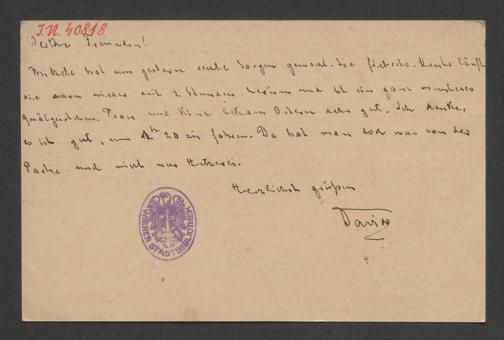 J.N. 40818
Freundin!
hat uns gestern Sorgen gemacht. Sie fieberte. Heute läuft
sie schon wieder seit 2 Stunden herum und ist ein ganz munteres
Frau und Kind Ostern sehr gut. Ich denke,
es ist gut, um 1h 20 zu fahren. Da hat man doch was von der
Partie und nicht nur Hetzerei.
Herzlichst grüßen
WIENER STADTBIBLIOTHEK